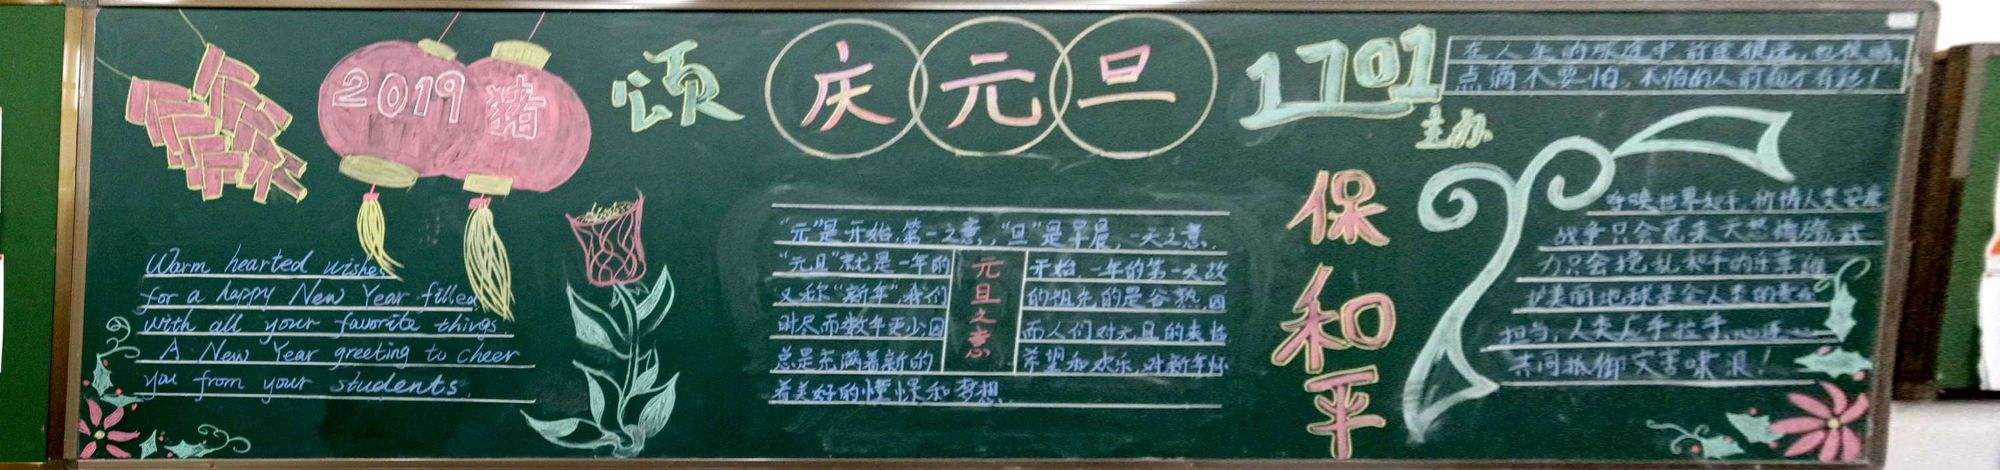 2019 猪
颂
庆元旦
1701
主办
在人生的旅途中前途很远,也很暗,
点滴不要怕,不怕的人前面才有路!
Warm hearted wishes
for a happy New Year filled
with all your favorite things.
A New Year greeting to cheer
you from your students.
"元"是开始,第一之意,"旦"是早晨,一天之意.
"元旦"就是一年的开始,一年的第一天改
又称"新年"我们的祖先的是谷熟,因
时尽而数年更少因而人们对元旦的来临
总是充满着新的希望和欢乐,对新年怀
着美好的憧憬和梦想.
元旦之意
保和平
呼唤世界和平,祈祷人类安康
战争只会惹来天怒
力只会扰乱和平的
美丽地球是全人类的责任
担当,人类左手拉手
共同抵御灾害啸浪!